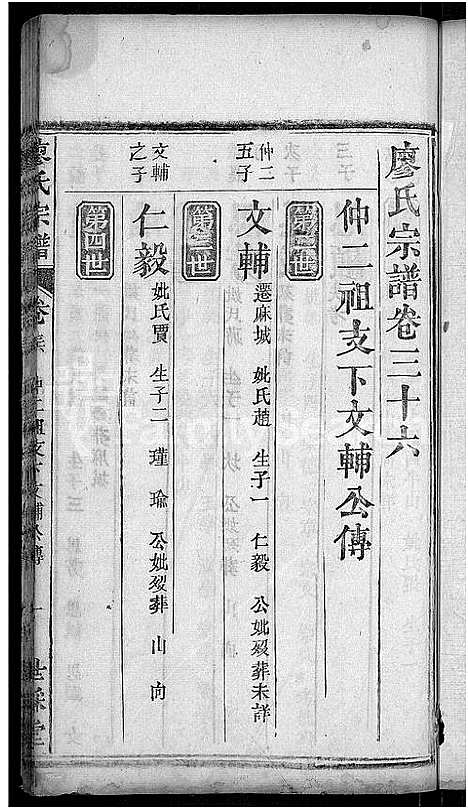 廖氏宗譜卷三十六
仲二祖支下文輔公傳
第二世
仲二五子
文輔 遷麻城 妣氏趙 生子一 仁毅 公妣歿葬未詳
第三世
文輔之子
仁毅 妣氏賈 生子二 瑾 瑜 公妣歿葬 山 向
第四世
廖氏宗譜 卷三六 仲二祖支下文輔公傳 一 世綵堂